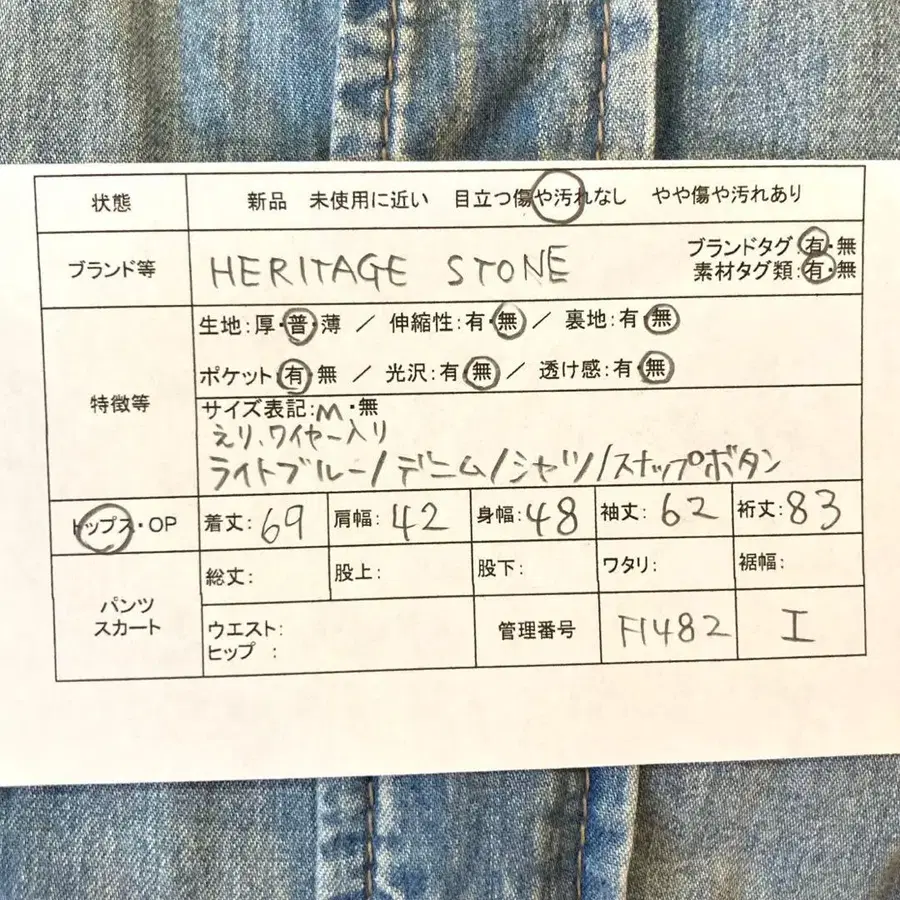 状態 新品 未使用に近い 目立つ傷や汚れなし やや傷や汚れあり
ブランド等 HERITAGE STONE ブランドタグ:有・無
素材タグ類:有・無
特徴等 生地:厚・普・薄 / 伸縮性:有・無 / 裏地:有・無
ポケット:有・無 / 光沢:有・無 / 透け感:有・無
サイズ表記:M・無
えり、ワイヤー入り
ライトブルー/デニム/シャツ/スナップボタン
トップス・OP 着丈:69 肩幅:42 身幅:48 袖丈:62 裄丈:83
パンツ スカート 総丈: 股上: 股下: ワタリ: 裾幅:
ウエスト:
ヒップ : 管理番号 F1482 I